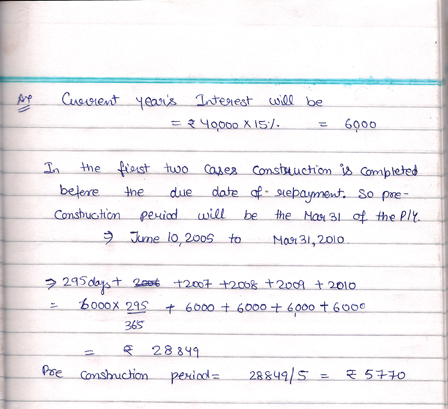 Ans Current year's Interest will be
= ₹ 40,000 × 15% = 6,000
In the first two cases construction is completed
before the due date of repayment. So pre-
Construction period will be the Mar 31 of the P/Y.
⇒ June 10, 2005 to Mar 31, 2010
⇒ 295 days + 2006 + 2007 + 2008 + 2009 + 2010
= 6000 × 295/365 + 6000 + 6000 + 6,000 + 6000
= ₹ 28849
Pre construction period = 28849/5 = ₹ 5770